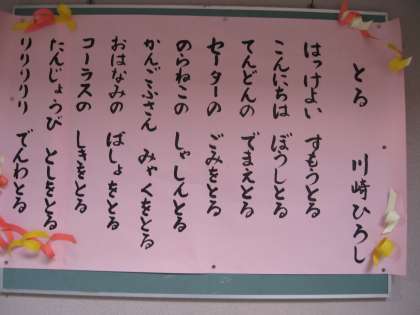 とる 川崎ひろし
はっけよい すもうとる
こんにちは ぼうしとる
てんどんの でまえとる
セーターの ごみをとる
のらねこの しゃしんとる
かんごふさん みゃくをとる
おはなみの ばしょをとる
コーラスの しきをとる
たんじょうび としをとる
リリリリリ でんわとる